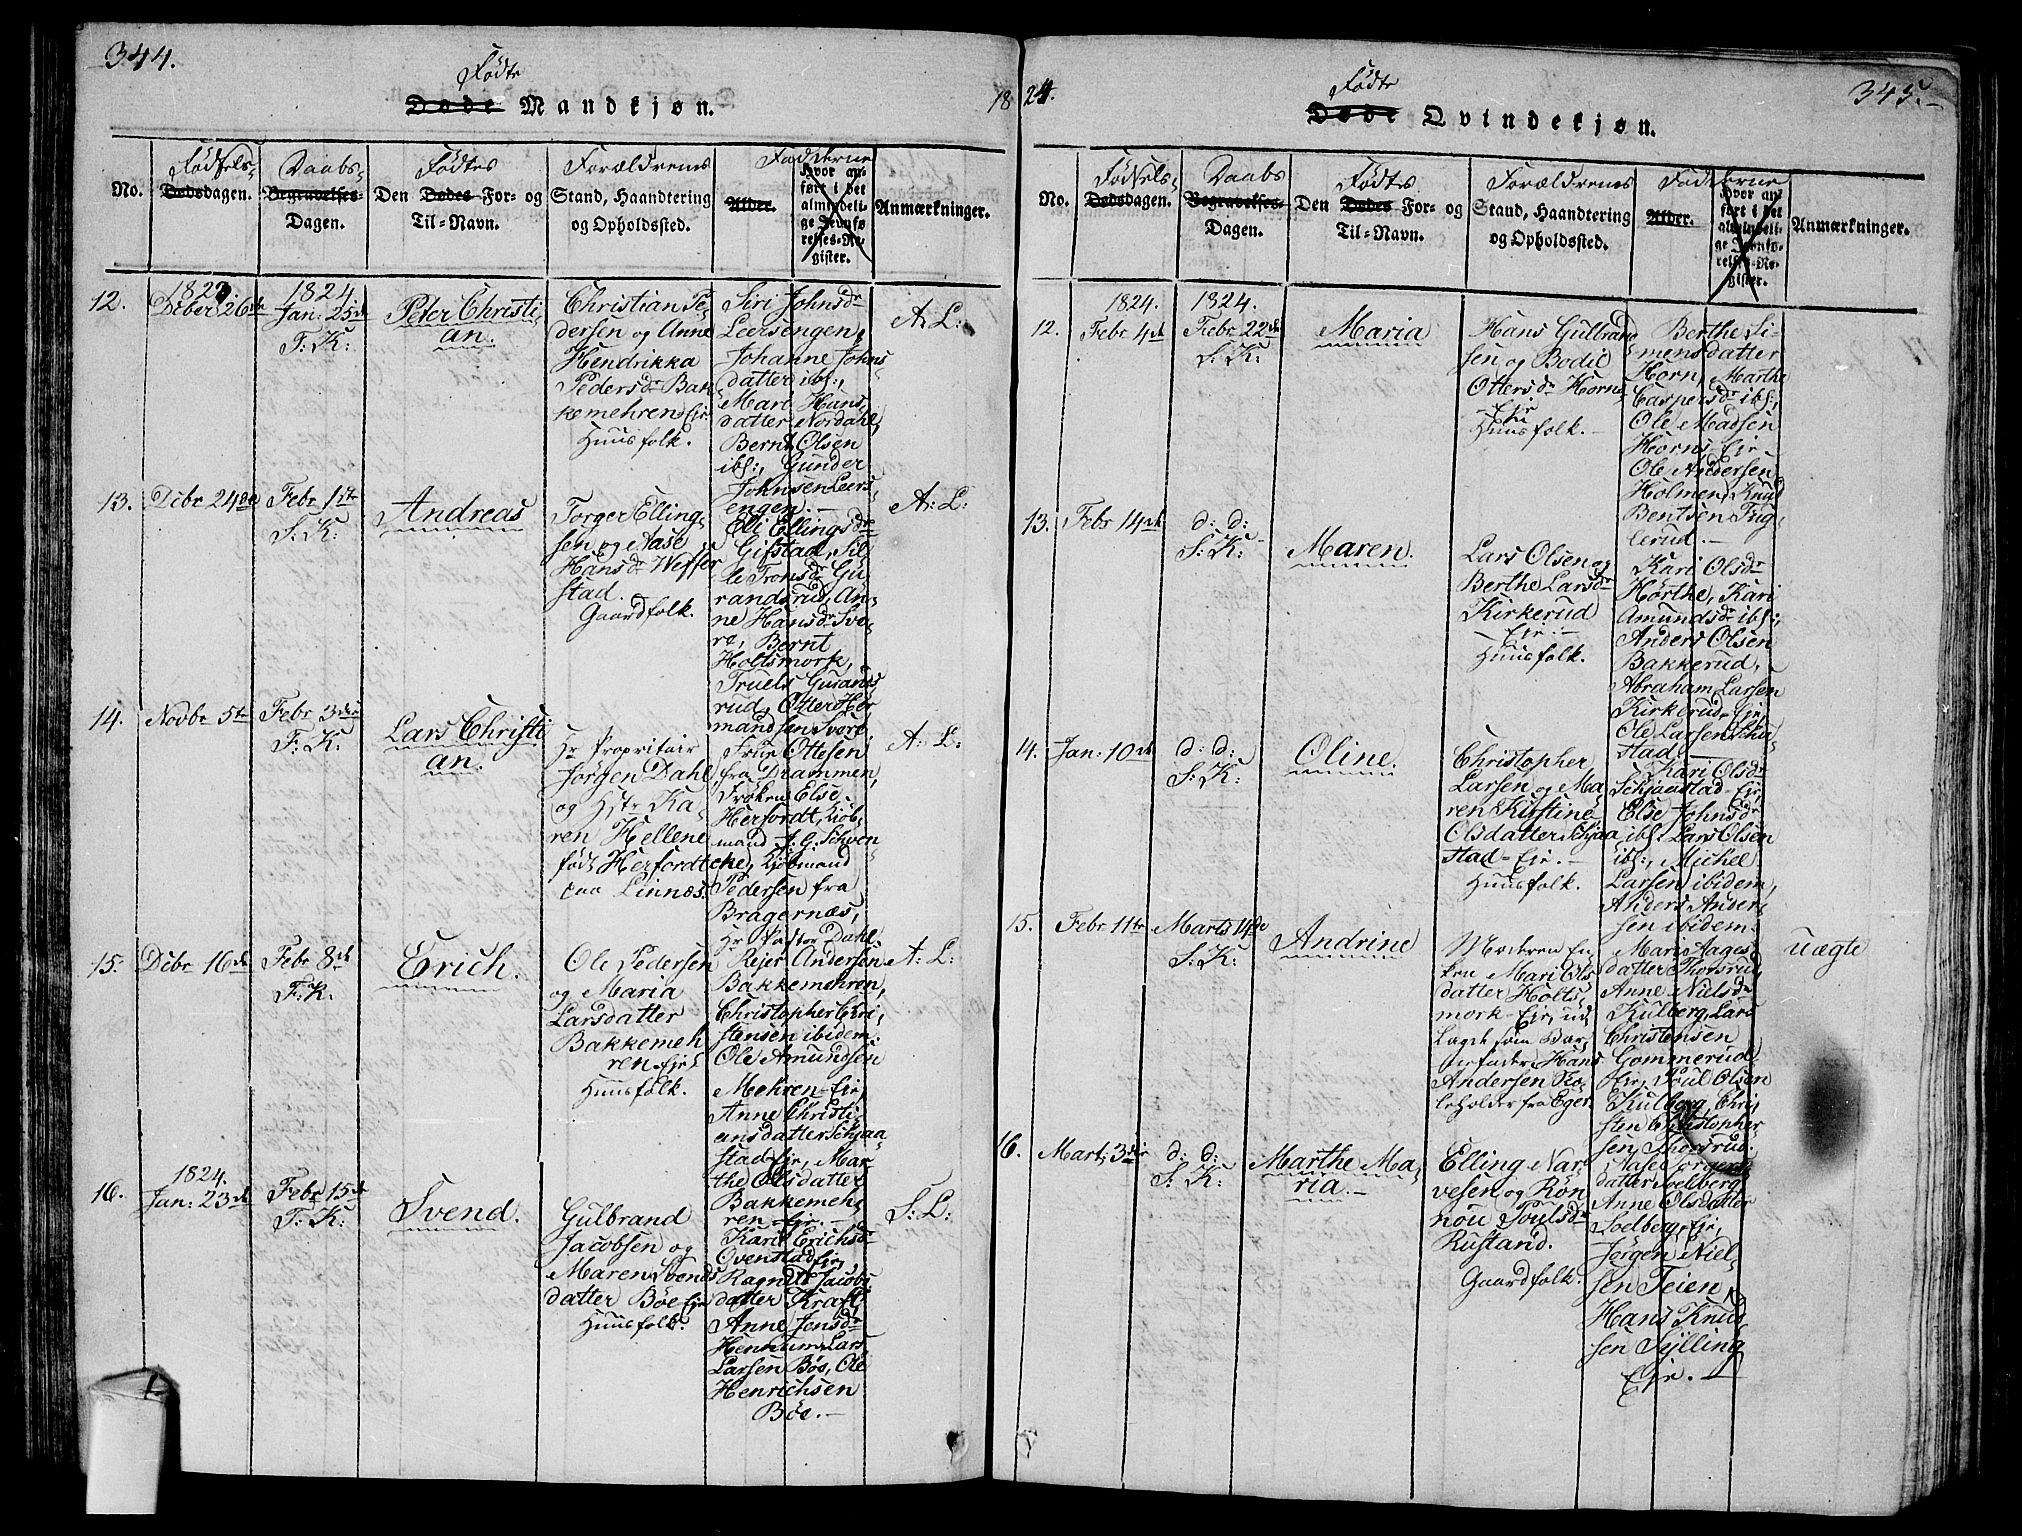 344.
Fødte
Døde Mandkjøn.
18
No.
Fødsels-
Dødsdagen.
Daabs-
Begravelses-
Dagen.
Fødtes
Den Dødes For- og
Til-Navn.
Forældrenes
Stand, Haandtering
og Opholdssted.
Fadderne
Alder.
Hvor an-
ført i det
almindeli-
ge Jevnfø-
relses-Re-
gister.
Anmærkninger.
12.
Dcber 26de
1824
Jan: 25de
F: K:
Peter Christi
an.
Christian Pe
dersen og Anne
Hendrikka
Pedersdr Bak
kemehren Eje
Huusfolk.
Siri Johnsdr
Leersengen,
Johanne Johns
datter ibd:,
Mari Hans,
datter Nordahl,
Bernt Olsen
ibd:, Gunder
Johnsen Leers,
engen. —
A: L:
13.
Dcbr 24de
Febr 1ste
S: K:
Andreas
Torger Elling,
sen og Aase
Hansdr Weffer
stad.
Gaardfolk.
Elli Ellingsdr
Gifstad, Sil
le Tromsdr Gu
randsrud, An
ne Hansdr Svo
re, Bernt
Holtsmork,
Truels Gurands
rud, Otter Her
mandsen Svore.
A: L:
14.
Novbr 5te
Febr 3die
F: K:
Lars Christi
an.
Hr Propritair
Jørgen Dahl
og Hstr Ka
ren Hellene
født Herfordt
paa Linnes.
Frue Ottesen
fra Drammen,
Frøken Else
Herfordt, Kiøb
mand J. G. Schven
cke, Kjøbmand
Pedersen fra
Bragernæs,
Hr Pastor Dahl.
A: L:
15.
Dcbr 16de
Febr 8de
F: K.
Erich.
Ole Pedersen
og Maria
Larsdatter
Bakkemeh
ren Eje
Huusfolk.
Rejer Andersen
Bakkemehren,
Christopher Chri
stensen ibidem.
Ole Amundsen
Mehren Eje,
Anne Christi
ansdatter Schjaa
stad Eje, Mar
the Olsdatter
Bakkemeh
ren Eje. —
A: L:
16.
1824.
Jan: 23de
Febr 15de
F: K:
Svend.
Gulbrand
Jacobsen og
Maren Svends
datter Bøe Eje
Huusfolk.
Kari Erichsdr
Ovenstad Eje,
Ragnild Jacobs
datter Kraft,
Anne Jensdr
Hennum, Lars
Larsen Bøs, Ole
Henrichsen
Bøe. —
S: L:
24.
Fødte
Døde Qvindekjøn.
345.
No.
Fødsels-
Dødsdagen.
Daabs
Begravelses-
Dagen.
Fødtes
Den Dødes For- og
Til-Navn.
Forældrenes
Stand, Haandtering
og Opholdssted.
Fadderne
Alder.
Hvor an-
ført i det
almindeli-
ge Jevnfø-
relses-Re-
gister.
Anmærkninger.
12.
1824.
Febr 4de
1824.
Febr 22de
S: K:
Maria
Hans Gulbrand
sen og Bodil
Ottersdr Horns
Eje
Huusfolk. —
Berthe Si
mensdatter
Horn, Marthe
Caspersdr ibd:,
Ole Madsen
Horns Eje
Ole Andersen
Holmen, Knud
Bentsen Fug
lerud. —
13.
Febr 14de
d: d:
S: K:
Maren.
Lars Olsen og
Berthe Larsdr
Kirkerud
Eje —
Huusfolk.
Kari Olsdr
Hørthe, Kari
Amundsdr ibd:,
Anders Olsen
Bakkerud,
Abraham Larsen
Kirkerud Eje,
Ole Larsen Scha
stad. —
14.
Jan: 10de
d: d:
S: K:
Oline.
Christopher
Larsen og Ma
ren Kirstine
Olsdatter Schjaa
stad Eje. —
Huusfolk.
Kari Olsdr
Schjaastad Eje,
Else Johnsdr
ibd: Lars Olsen
ibd:, Michel
Larsen ibidem,
Anders Ander
sen ibidem.
15.
Febr 11te
Marts 14de
S: K:
Andrine
Moderen En
ken Mari Ols
datter Holts
mork Eje, ud
lagt som Bar
nefader Hans
Andersen Ko
leholder fra Eger
Mari Aages
datter Thorsrud,
Anne Nielsdr
Kulberg, Lars
Christensen
Gommerud
Eje, Poul Olsen
Kulberg, Chri
sten Christopher
sen Thorsrud.
Uægte
16.
Marts 3die
d: d:
S: K:
Marthe Ma
ria. —
Elling Nar
vesen og Røn
nou Poulsdr
Rustand.
Gaardfolk.
Aase Torgers
datter Soelberg,
Anne Olsdatter
Soelberg Eje,
Jørgen Niel
sen Teien,
Hans Knud
sen Sylling
Eje. —